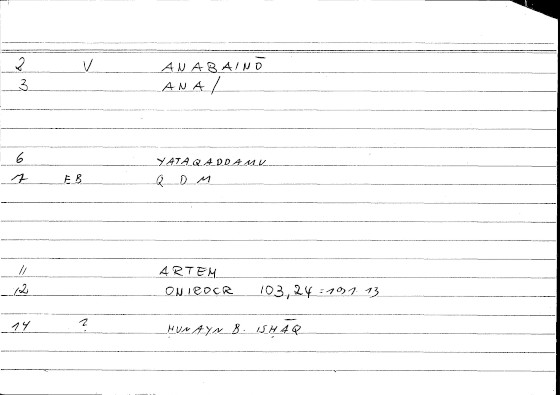 2 V ANABAINŌ
3 ANA/
6 YATAQADDAMU
7 EB Q D M
11 ARTEM
12 ONIROCR 103,24 = 191 13
14 ? ḤUNAYN B. ISḤĀQ